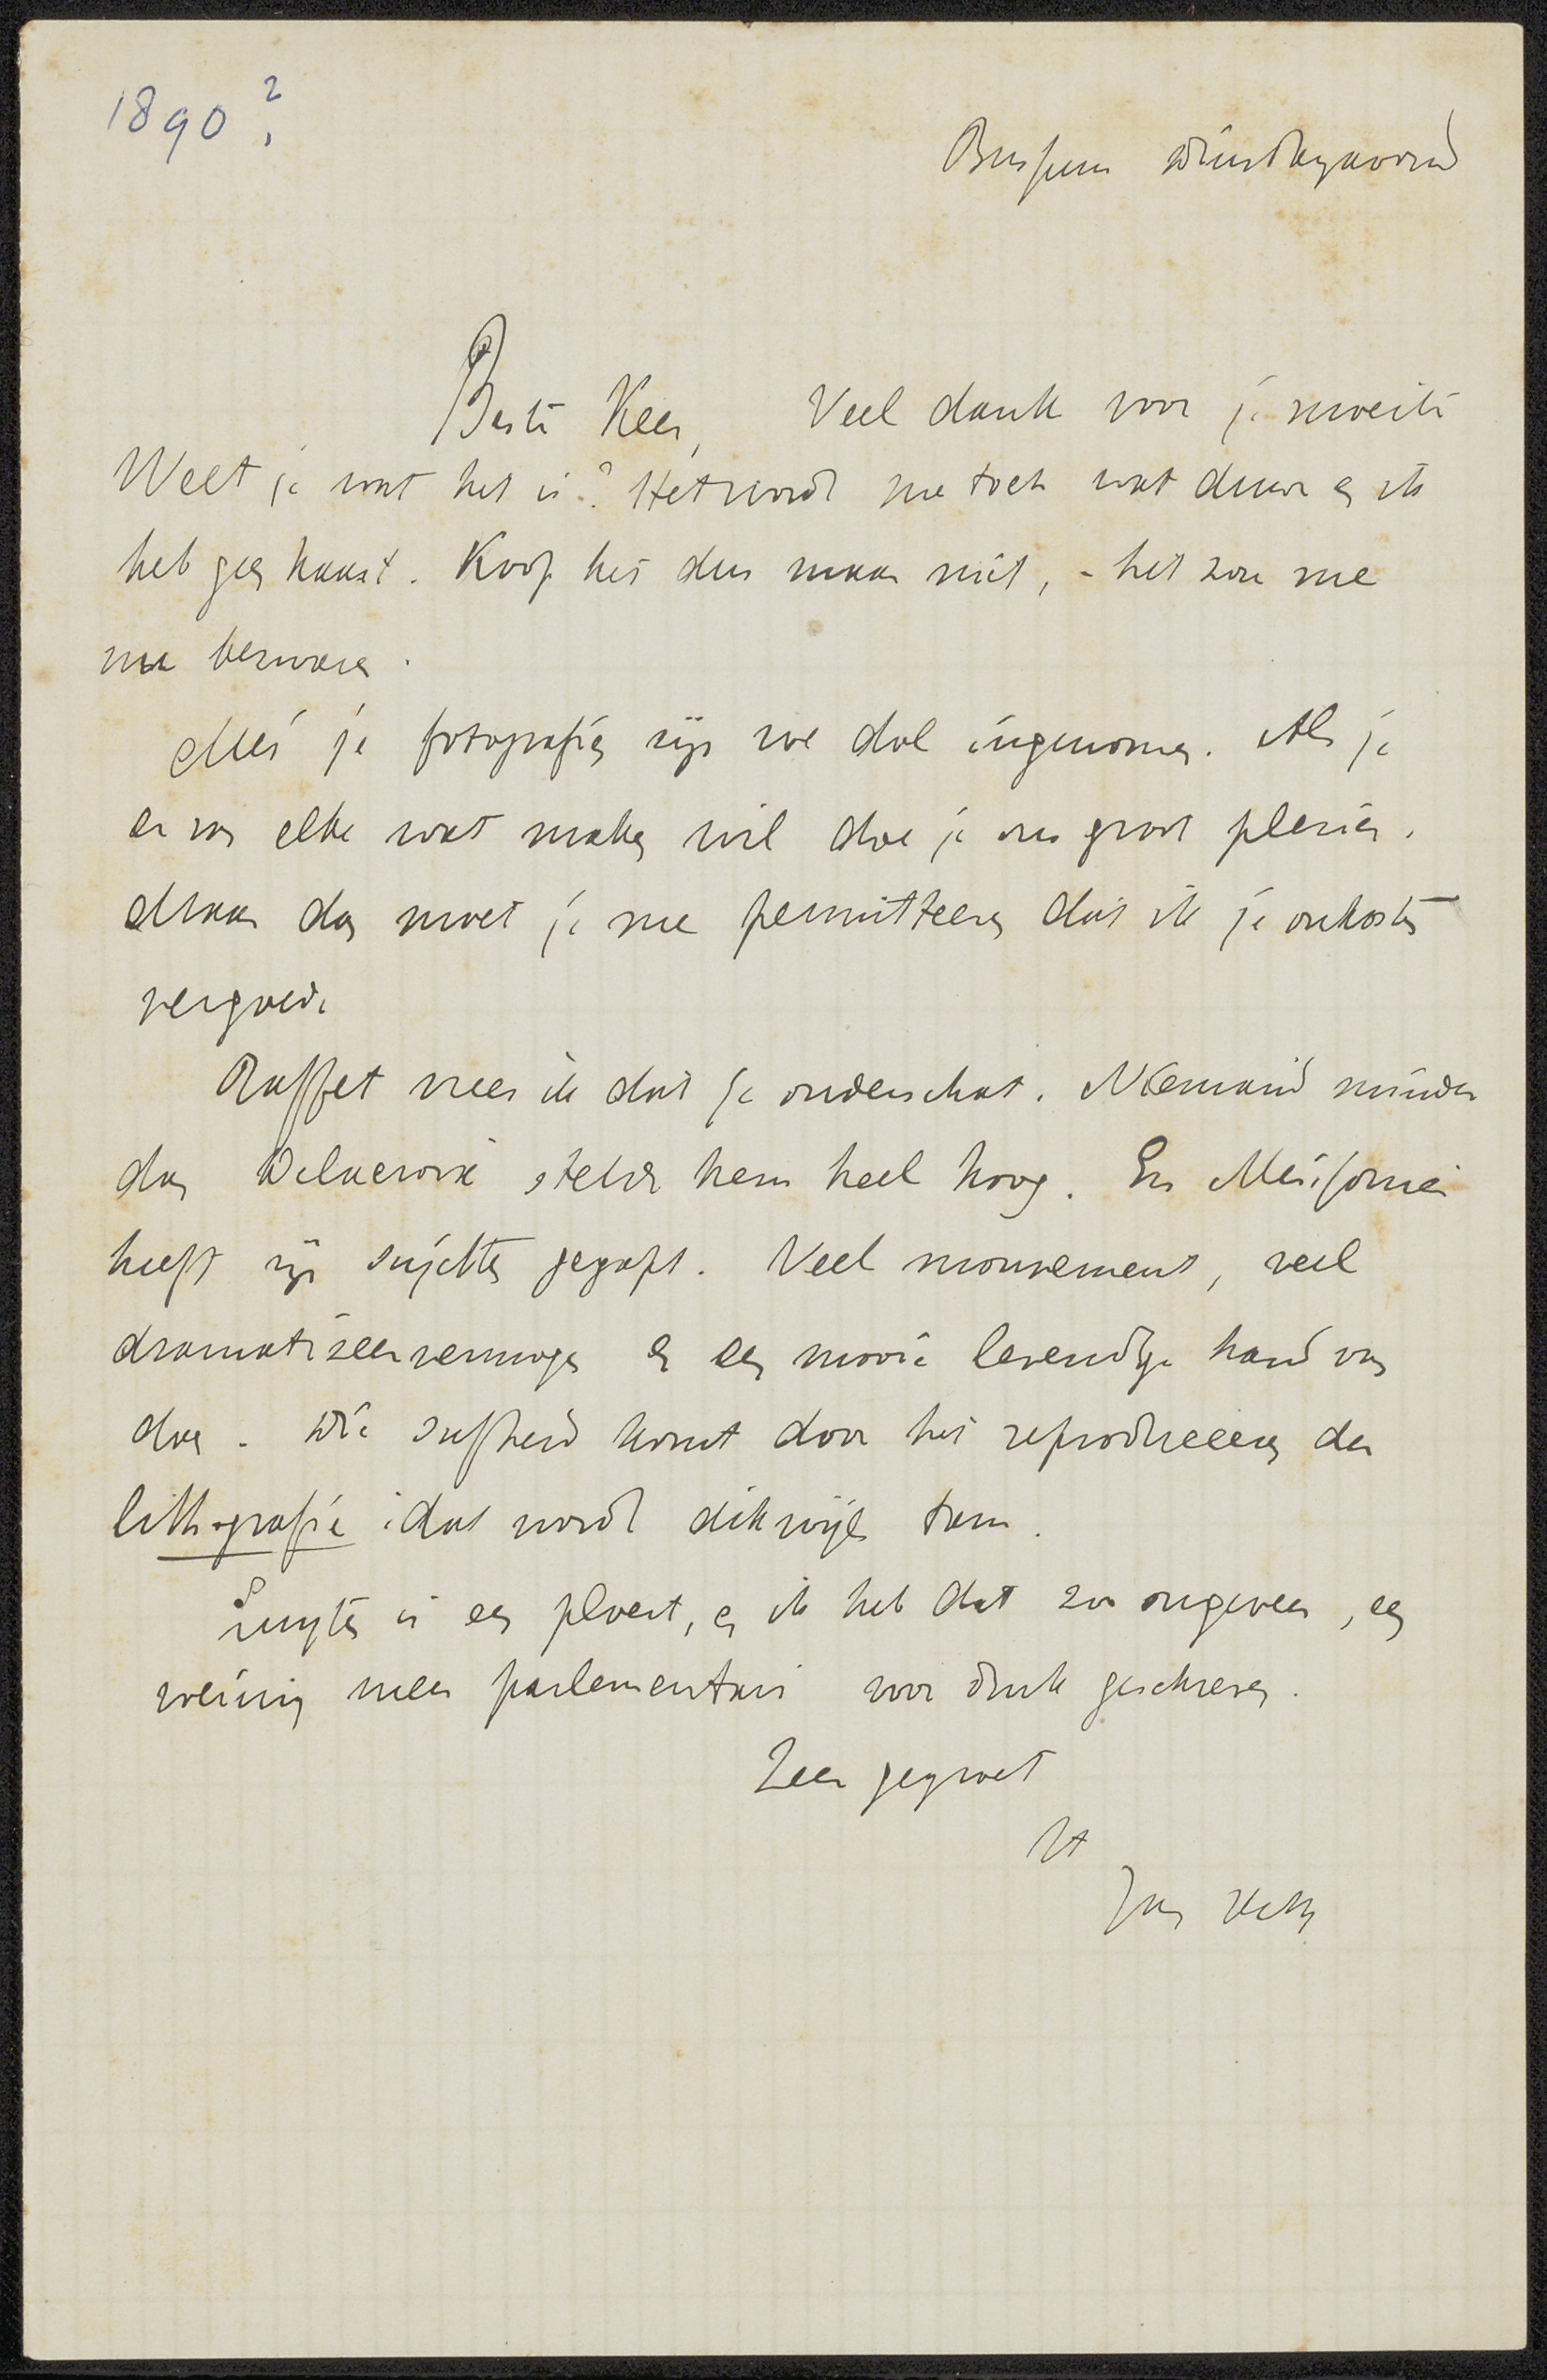 1890?
Bussum Dinsdagavond
Beste Kees, Veel dank voor je moeite
Weet je wat het is? Het wordt me toch wat duur en ik
heb geen haast. Koop het dus maar niet, - het zou me
nu bezwaren.
Met je fotografien zijn we dol ingenomen. Als je
er van elke wat maken wil doe je ons groot plezier.
Maar dan moet je me permitteeren dat ik je onkosten
vergoed.
Raffet vrees ik dat je onderschat. Niemand minder
dan Delacroix stelde hem heel hoog. En Meissonier
heeft zijn sujetten gegapt. Veel mouvement, veel
dramatiseervermogen en een mooie levendige hand van
doen. Die sufheid komt door het reproduceeren der
lithografie: dat wordt dikwijls tam.
is een ploert, en ik heb dat zoo ongeveer, een
weinig meer parlementair voor druk geschreven.
Zeer gegroet
Jan Veth